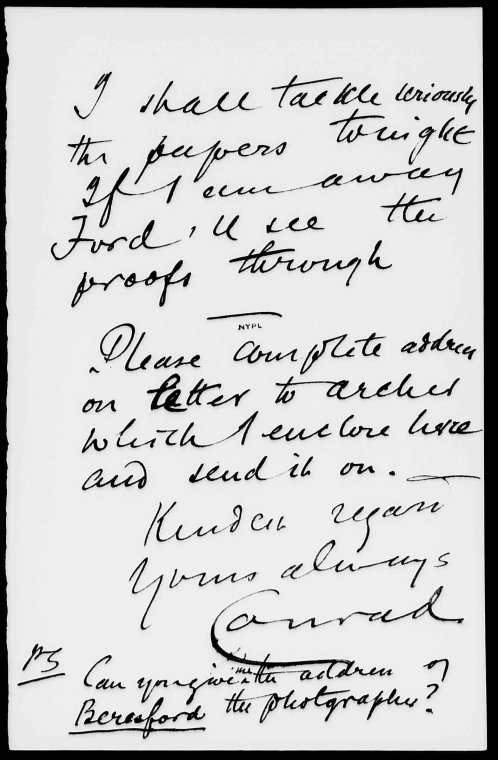 I shall tackle seriously
the papers tonight
If I am away
Ford'll see the
proofs through
NYPL
Please complete address
on letter to Archer
which I enclose here
and send it on.
Kindest regards
Yours always
Conrad.
PS
Can you give me the address of
Beresford the photographer?